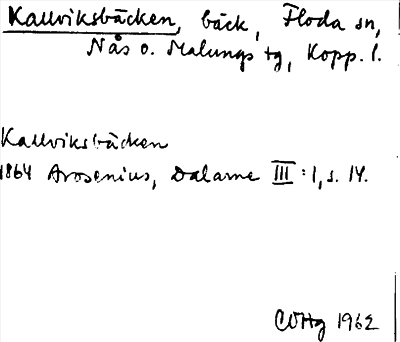 Kallviksbäcken, bäck, Floda sn,
Nås o. Malungs tg, Kopp. l.
Kallviksbäcken
1864 Arosenius, Dalarne III:1, s. 14.
CWHg 1962